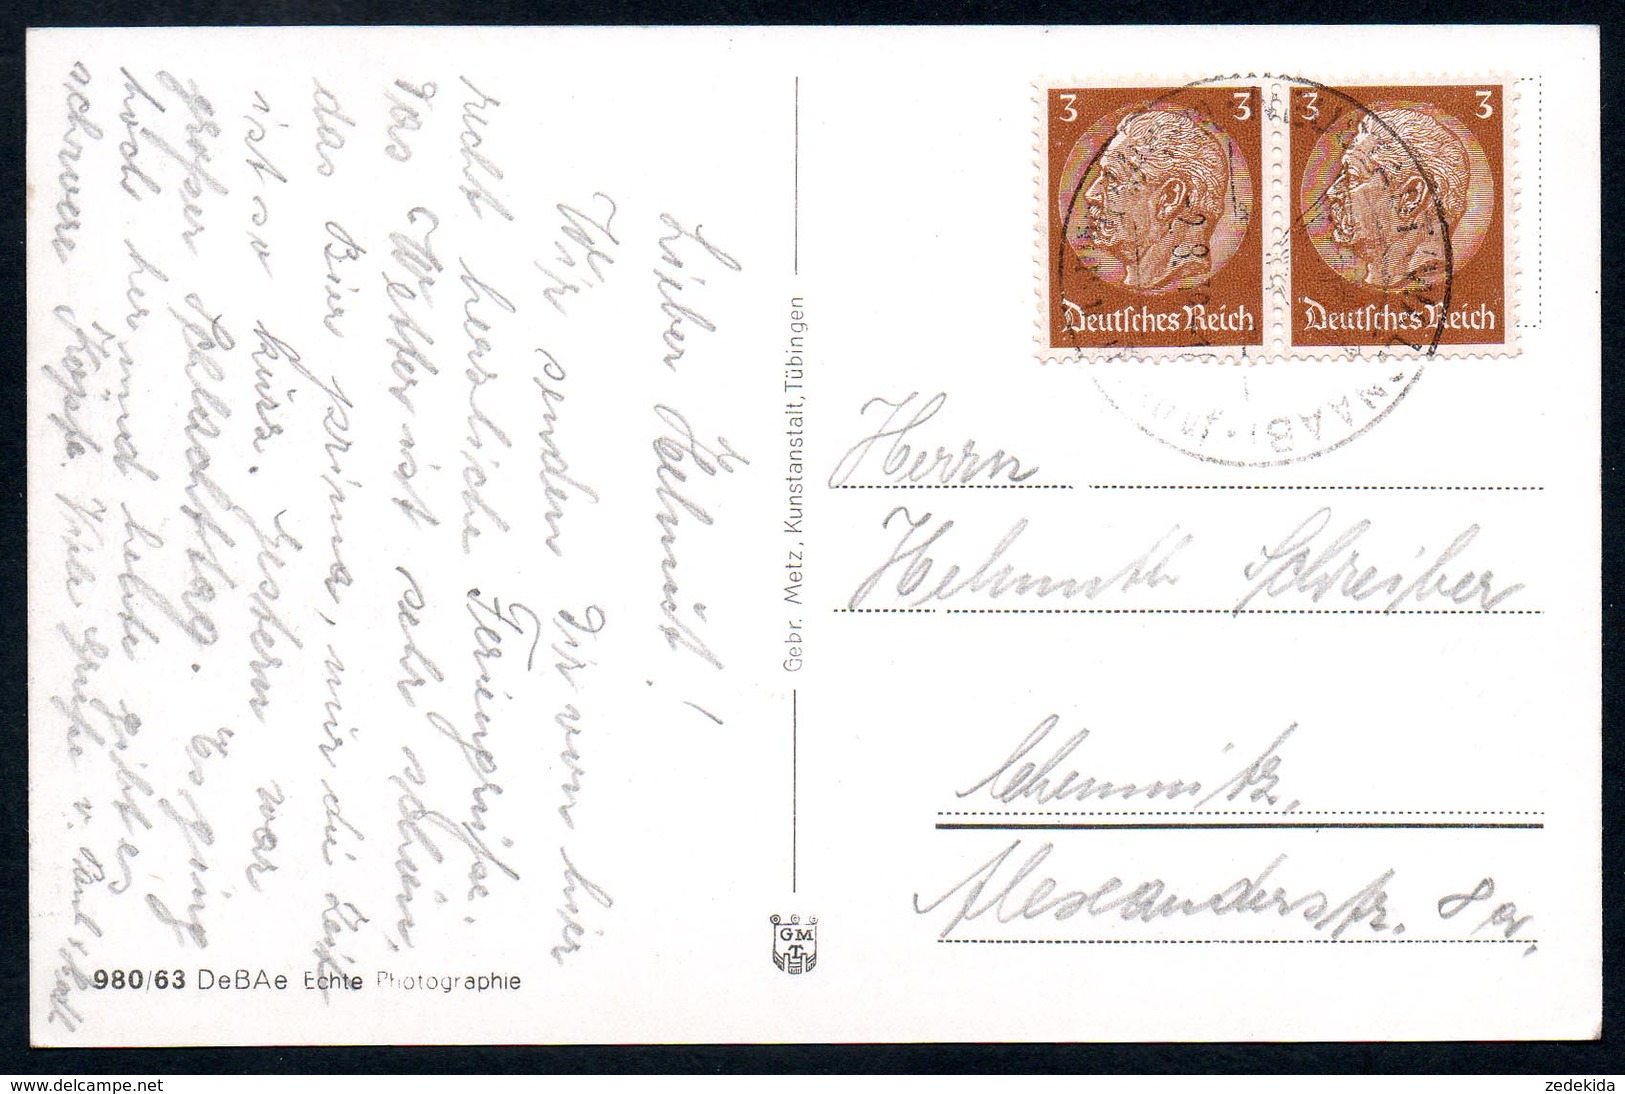 Lieber Helmut!
Wir senden Dir vom hier
recht herzliche Feriengrüße.
Das Wetter ist sehr schön,
das Bier prima, nur die Zeit
ist so kurz. Gestern war
großer Schlachttag. Es ging
hoch her und heute gibt es
schwere Köpfe. Viele Grüße v. Paul
Gebr. Metz, Kunstanstalt, Tübingen
GMT
980/63 DeBAe Echte Photographie
3 3
Deutsches Reich
3 3
Deutsches Reich
Herrn
Helmuth Schreiber
Chemnitz,
Alexanderstr. 8
delcampe.net
zedekida